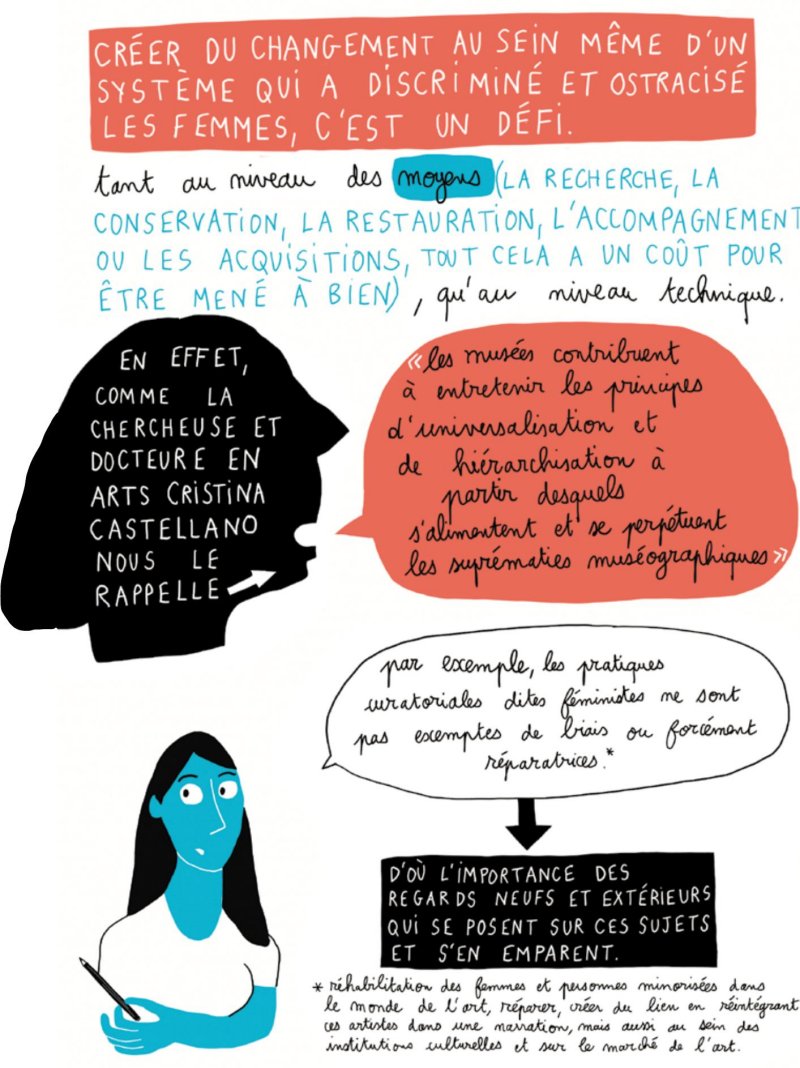 CRÉER DU CHANGEMENT AU SEIN MÊME D'UN
SYSTÈME QUI A DISCRIMINÉ ET OSTRACISÉ
LES FEMMES, C'EST UN DÉFI.
tant au niveau des moyens (LA RECHERCHE, LA
CONSERVATION, LA RESTAURATION, L'ACCOMPAGNEMENT
OU LES ACQUISITIONS, TOUT CELA A UN COÛT POUR
ÊTRE MENÉ À BIEN), qu'au niveau technique.
EN EFFET,
COMME LA
CHERCHEUSE ET
DOCTEURE EN
ARTS CRISTINA
CASTELLANO
NOUS LE
RAPPELLE
«les musées contribuent
à entretenir les principes
d'universalisation et
de hiérarchisation à
partir desquels
s'alimentent et se perpétuent
les suprématies muséographiques»
par exemple, les pratiques
curatoriales dites féministes ne sont
pas exemptes de biais ou forcément
réparatrices.*
D'OÙ L'IMPORTANCE DES
REGARDS NEUFS ET EXTÉRIEURS
QUI SE POSENT SUR CES SUJETS
ET S'EN EMPARENT.
* réhabilitation des femmes et personnes minorisées dans
le monde de l'art, réparer, créer du lien en réintégrant
ces artistes dans une narration, mais aussi au sein des
institutions culturelles et sur le marché de l'art.